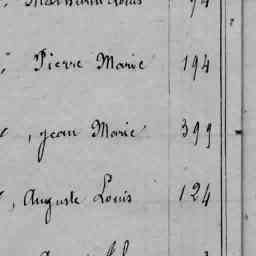 Pierre Marie 194
, Jean Marie 399
, Auguste Louis 124